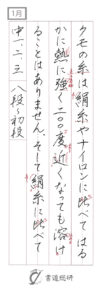 1月
クモの糸は絹糸やナイロンに比べて はる
かに熱に強く二〇〇度近くなっても溶け
ることはありません。そして絹糸に比べて
中一・二・三 八段〜初段
書道総研